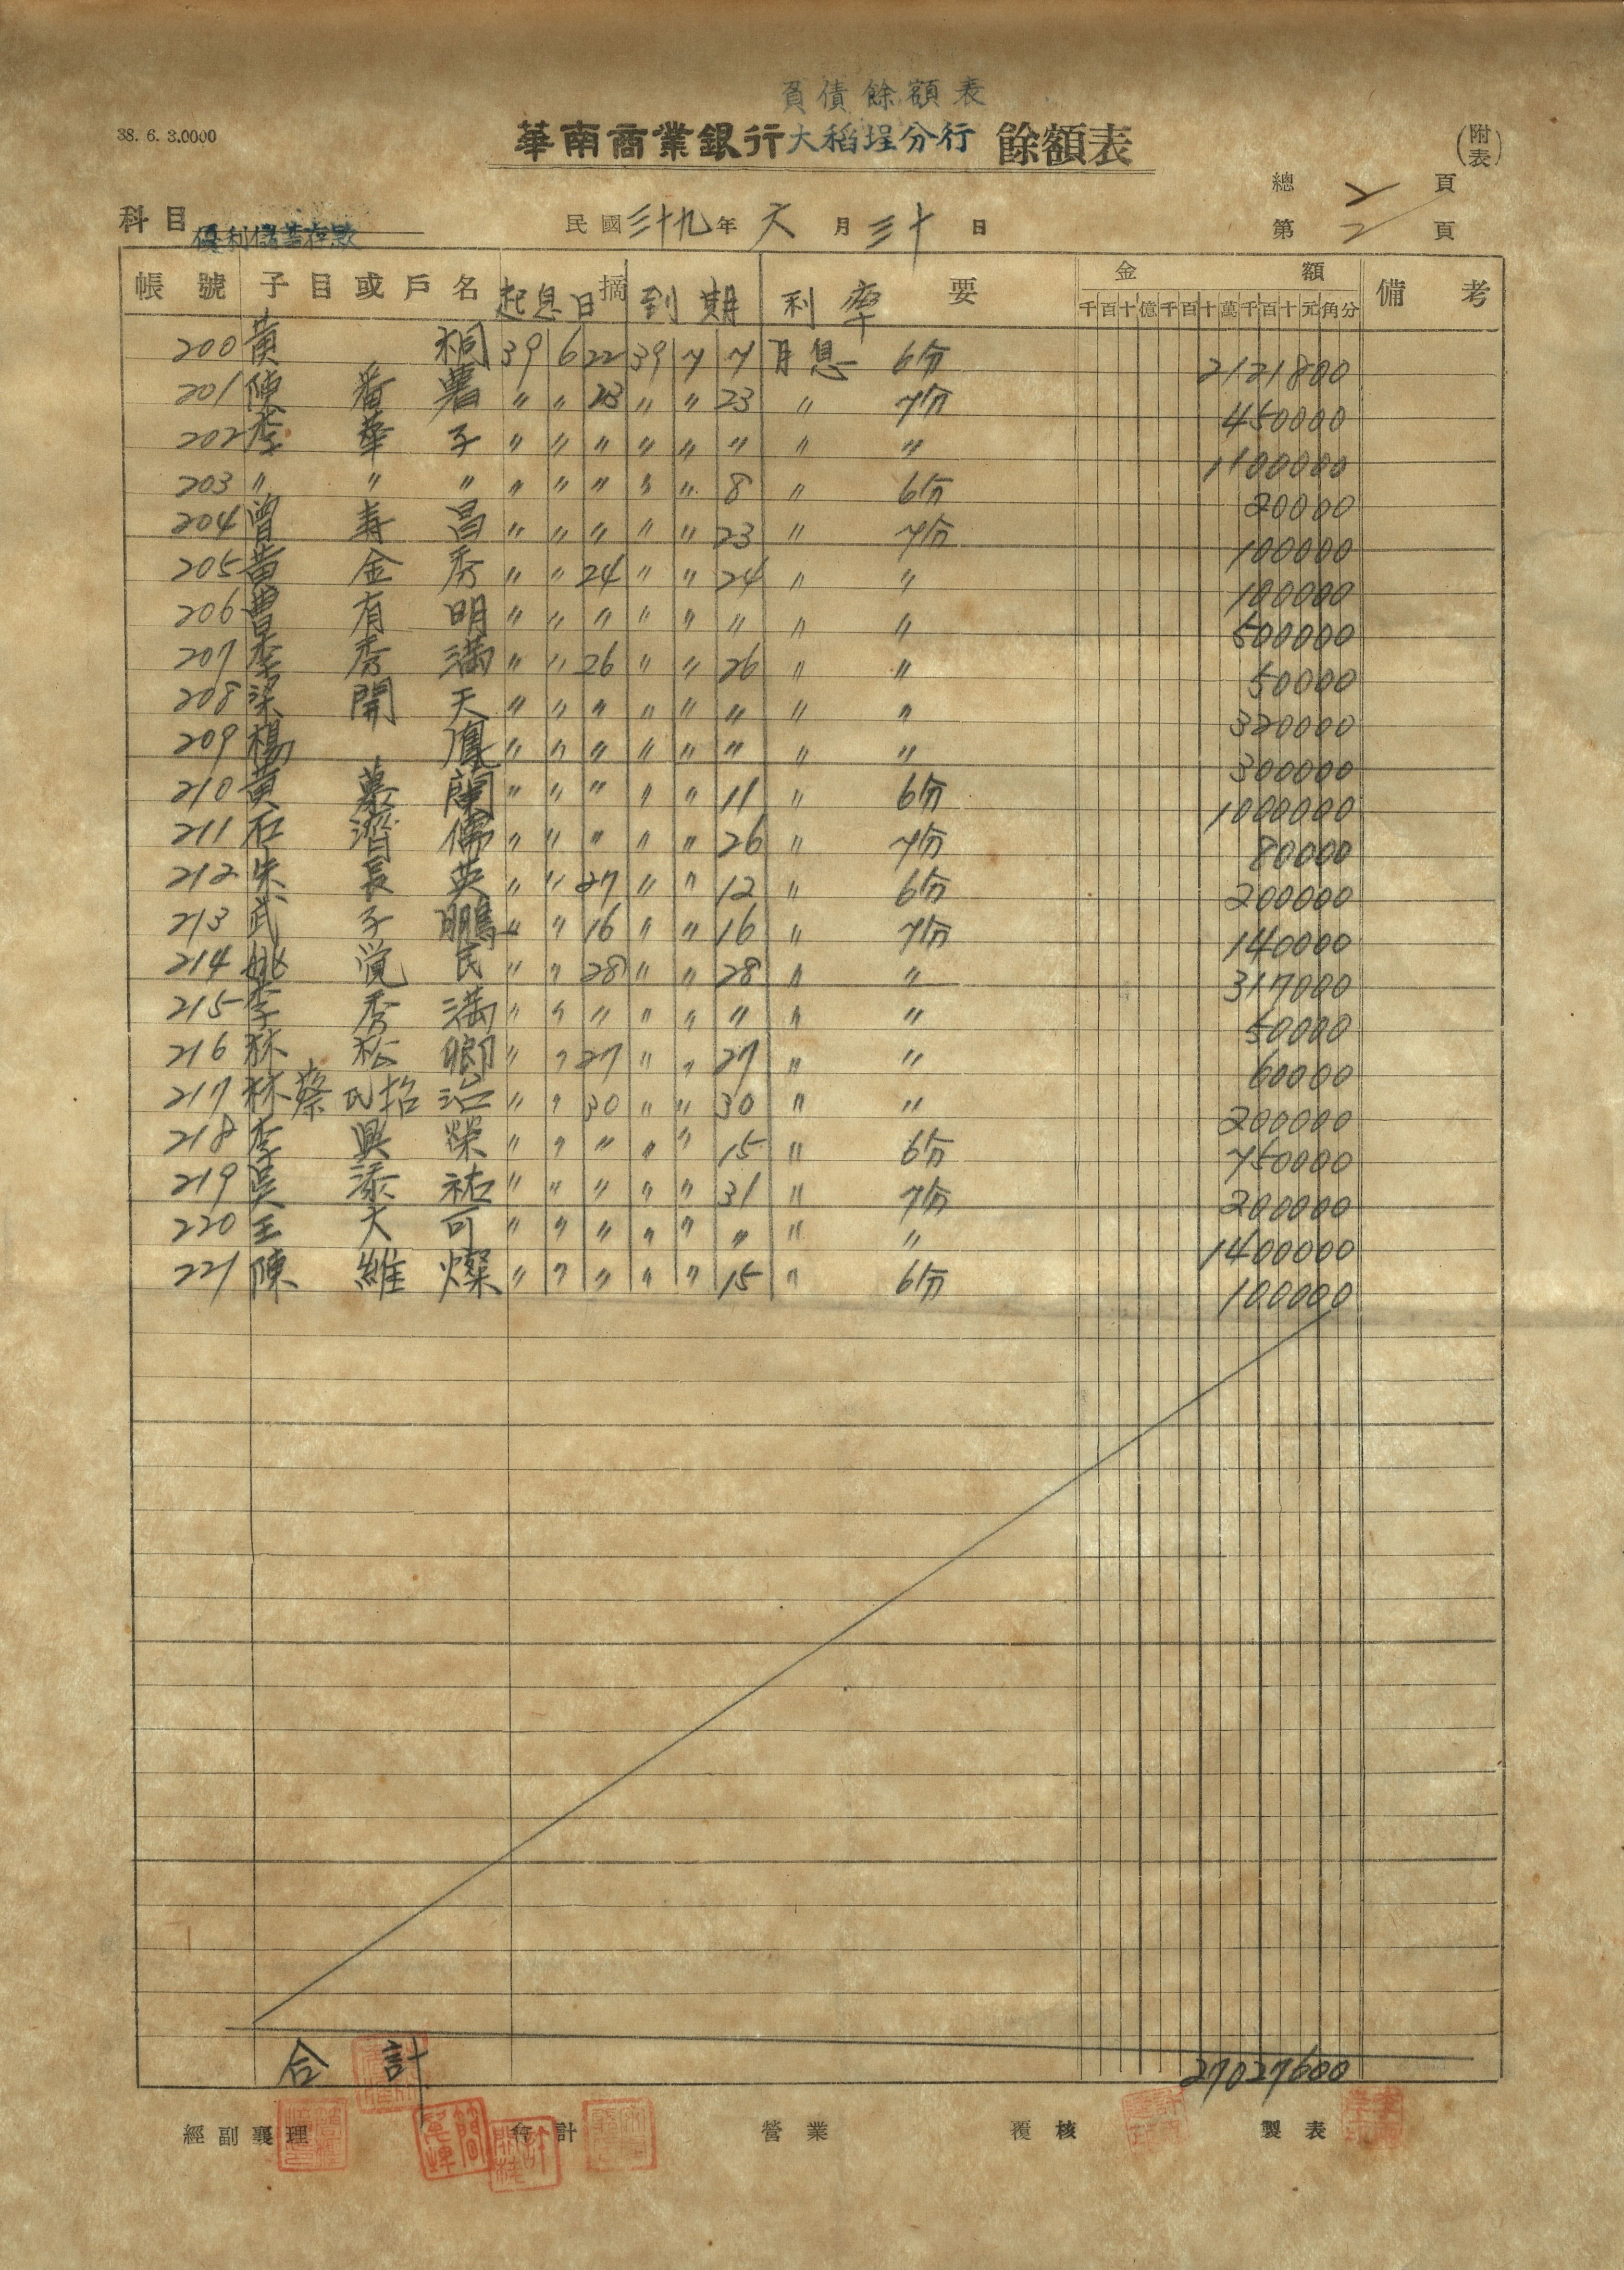 負債餘額表
38. 6. 3.0000
華南商業銀行大稻埕分行 餘額表
(附表)
總 2 頁
科目 優利儲蓄存款
民國三十九年六月三十日
第 2 頁
帳號 子目或戶名 摘要 金額 備考
起息日 到期 利率
千百十億千百十萬千百十元角分
200 黃 桐 39 6 22 39 7 7 月息 6分 2121800
201 陳番薯 〃 〃 23 〃 〃 23 〃 7分 450000
202 李華子 〃 〃 〃 〃 〃 〃 〃 〃 1100000
203 〃 〃 〃 〃 〃 〃 〃 〃 8 〃 6分 20000
204 曾壽昌 〃 〃 〃 〃 〃 23 〃 7分 100000
205 黃金秀 〃 〃 24 〃 〃 24 〃 〃 100000
206 曹有明 〃 〃 〃 〃 〃 〃 〃 〃 500000
207 李秀滿 〃 〃 26 〃 〃 26 〃 〃 50000
208 梁開天 〃 〃 〃 〃 〃 〃 〃 〃 320000
209 楊 鳳 〃 〃 〃 〃 〃 〃 〃 〃 300000
210 黃慕蘭 〃 〃 〃 〃 〃 11 〃 6分 1000000
211 石濟儒 〃 〃 〃 〃 〃 26 〃 7分 80000
212 朱長英 〃 〃 27 〃 〃 12 〃 6分 200000
213 武子鵬 〃 〃 16 〃 〃 16 〃 7分 140000
214 姚覚民 〃 〃 28 〃 〃 28 〃 〃 317000
215 李秀滿 〃 〃 〃 〃 〃 〃 〃 〃 50000
216 林松卿 〃 〃 27 〃 〃 27 〃 〃 60000
217 林蔡氏招治 〃 〃 30 〃 〃 30 〃 〃 200000
218 李興榮 〃 〃 〃 〃 〃 15 〃 6分 750000
219 吳添祐 〃 〃 〃 〃 〃 31 〃 7分 200000
220 王大可 〃 〃 〃 〃 〃 〃 〃 〃 1400000
221 陳維燦 〃 〃 〃 〃 〃 15 〃 6分 100000
合計 27027600
經副襄理 會計 營業 覆核 製表